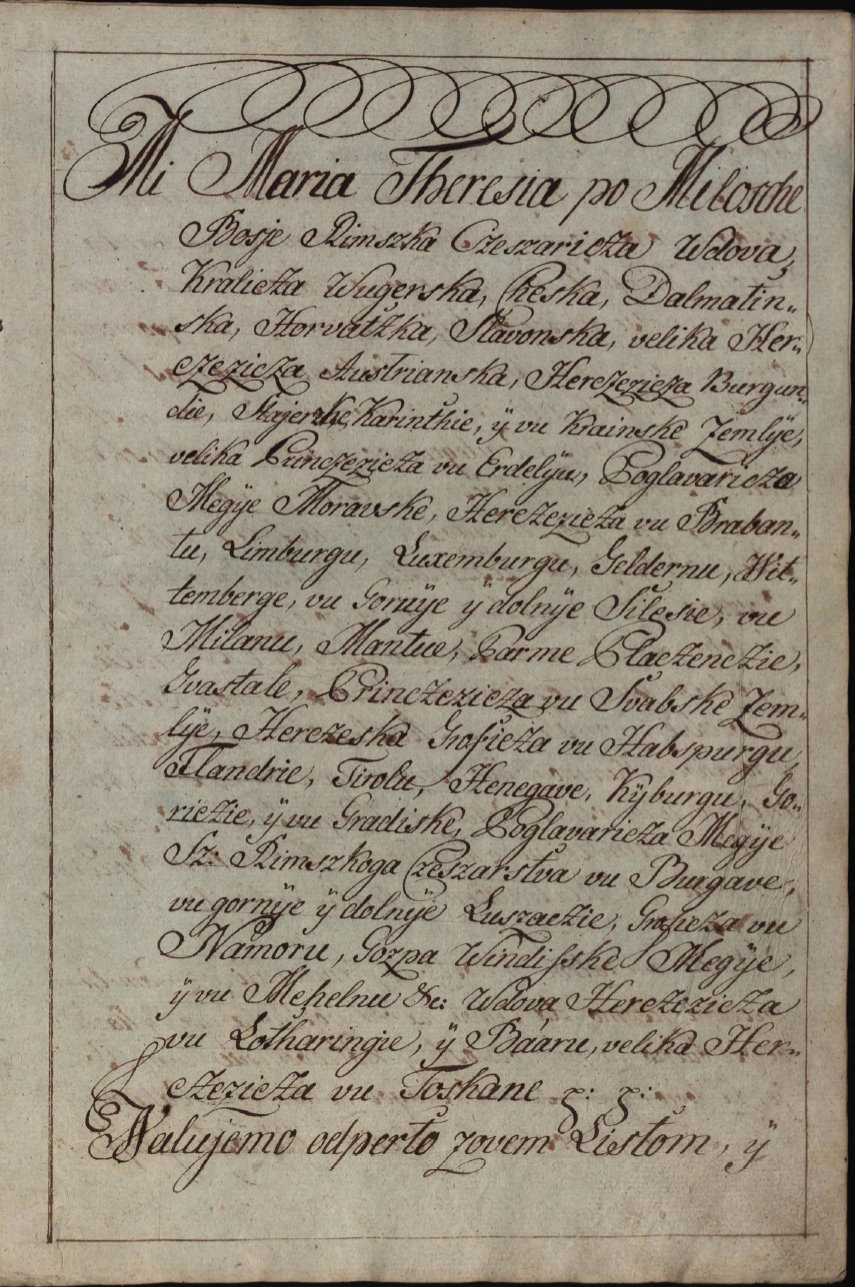 Mi Maria Theresia po Milosche
Bosje Rimszka Czeszaricza Wdova,
Kralicza Wugerska, Cheska, Dalmatin„
ska, Horvatzka, Slavonska, velika Her„
czezicza Austrianska, Herczezicza Burgun„
die, Stajerske, Karinthie, ÿ vu Krainske Zemlÿe,
velika Princzezicza vu Erdelÿu, Poglavaricza
Megÿe Moravske, Herczezicza vu Braban„
tu, Limburgu, Luxemburgu, Geldernu, Wit„
temberge, vu Gornÿe ÿ dolnÿe Silesie, vu
Milanu, Mantue, Parme Placzenczie,
Gvastale, Princzezicza vu Svabske Zem„
lÿe, Herczeska Groficza vu Habspurgu,
Flandrie, Tirolu, Henegave, Kÿburgu, Go„
riczie, ÿ vu Gradiske, Poglavaricza Megÿe
Sz: Rimszkoga Czeszarstva vu Burgave,
vu gornÿe ÿ dolnÿe Luszaczie, Groficza vu
Namoru, Gozpa Windisske Megÿe,
ÿ vu Mehelnu &c: Wdova Herczezicza
vu Lotharingie, ÿ Báaru, velika Her„
czezicza vu Toskane p: p:
Walujemo odperto zovem Listom, ÿ